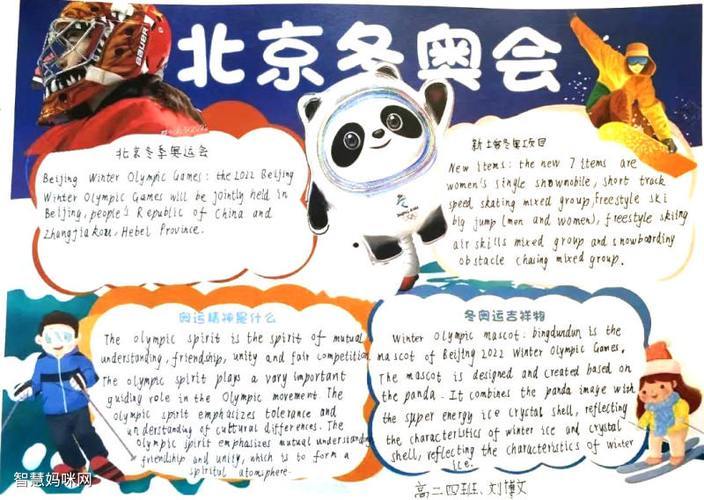 北京冬奥会
北京冬季奥运会
Beijing Winter Olympic Games: the 2022 Beijing
Winter Olympic Games will be jointly held in
Beijing, people's Republic of China and
Zhangjiakou, Hebei Province.
新上省冬奥项目
New items: the new 7 items are
women's single snowmobile, short track
speed skating mixed group, Freestyle ski
big jump (men and women), freestyle skiing
air skills mixed group and snowboarding
obstacle chasing mixed group.
奥运精神是什么
The olympic spirit is the spirit of mutual
understanding, friendship, unity and fair competition
The olympic spirit plays a very important
guiding role in the Olympic movement The
olympic spirit emphasizes tolerance and
understanding of cultural differences. The
olympic spirit emphasizes mutual understanding
friendship and unity, which is to form a
spiritual atomiphere.
冬奥运吉祥物
Winter Olympic mascot: bingdundun is the
mascot of Beijing 2022 Winter Olympic Games.
The mascot is designed and created based on
the panda. It combines the panda image with
the super energy ice crystal shell, reflecting
the characteristics of winter ice and crystal
shell, reflecting the characteristics of winter
ice.
高二四班、刘博文
智慧妈咪网